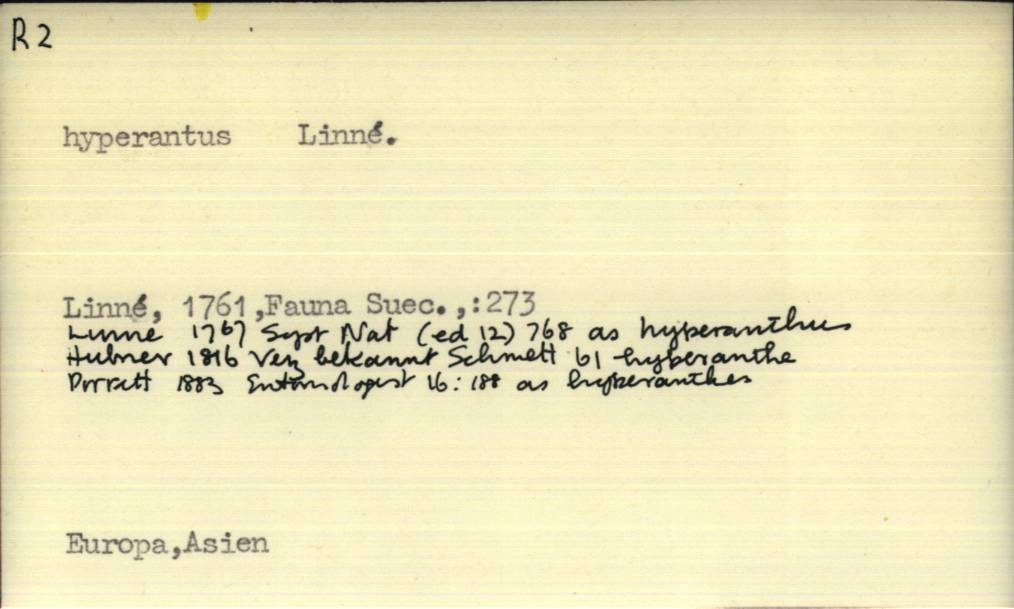 R2
hyperantus Linné.
Linné, 1761,Fauna Suec.,:273
Linne 1767 Syst Nat (ed 12) 768 as hyperanthus
Hubner 1816 Verz bekannt Schmett 61 hyperanthe
Porritt 1883 Entomologist 16:188 as hyperanthes
Europa,Asien